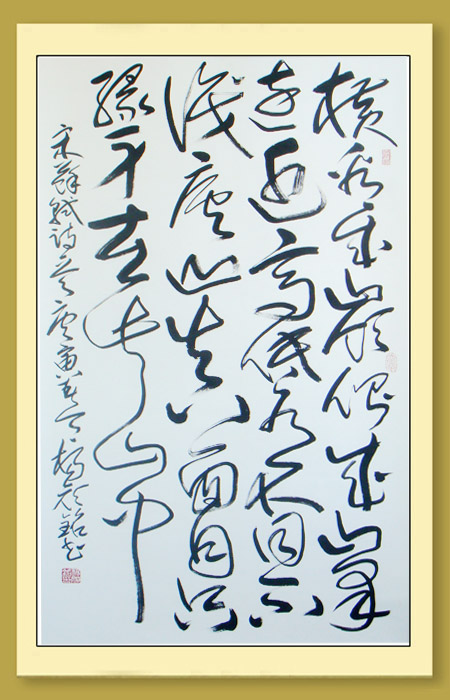 橫看成嶺側成峰
遠近高低各不同不
識廬山真面目只
緣身在此山中
宋蘇軾詩一首庚寅春